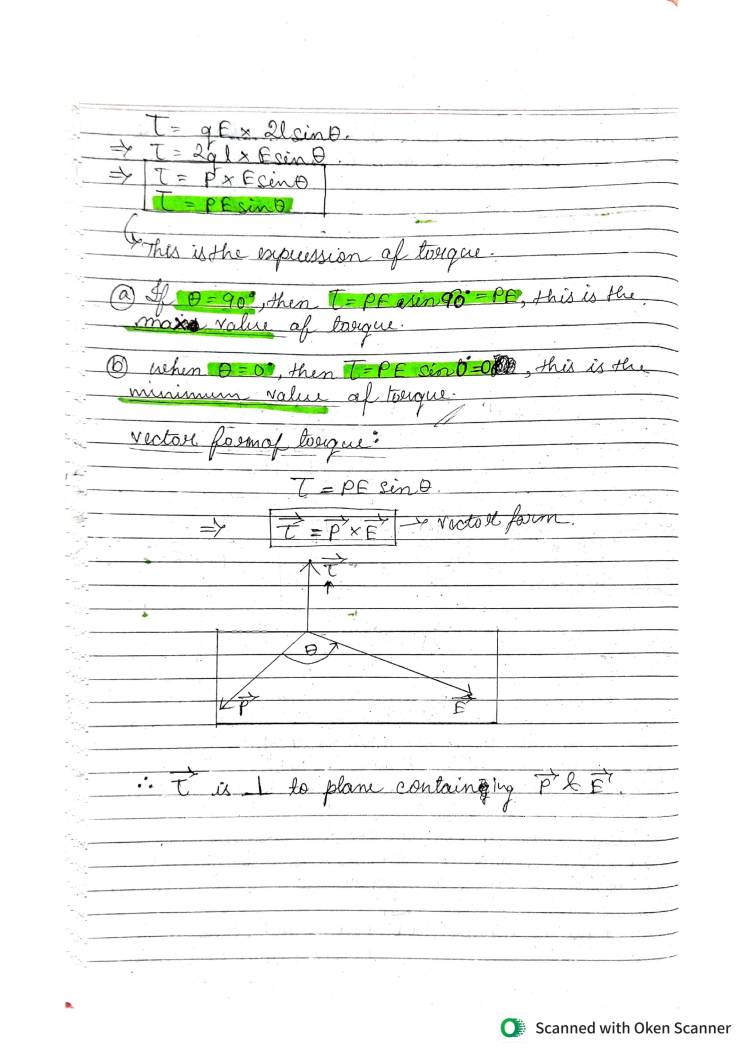 τ = qE × 2l sinθ.
⇒ τ = 2ql × E sinθ.
⇒ τ = P × E sinθ
τ = PE sinθ
This is the expression of torque.
(a) If θ = 90°, then τ = PE sin 90° = PE, this is the
max value of torque.
(b) when θ = 0°, then τ = PE sin 0° = 0, this is the
minimum value of torque.
vector form of torque:
τ = PE sinθ.
⇒ τ⃗ = P⃗ × E⃗ → vector form.
τ⃗
θ
P⃗ E⃗
∴ τ⃗ is ⊥ to plane containing P⃗ & E⃗.
Scanned with Oken Scanner